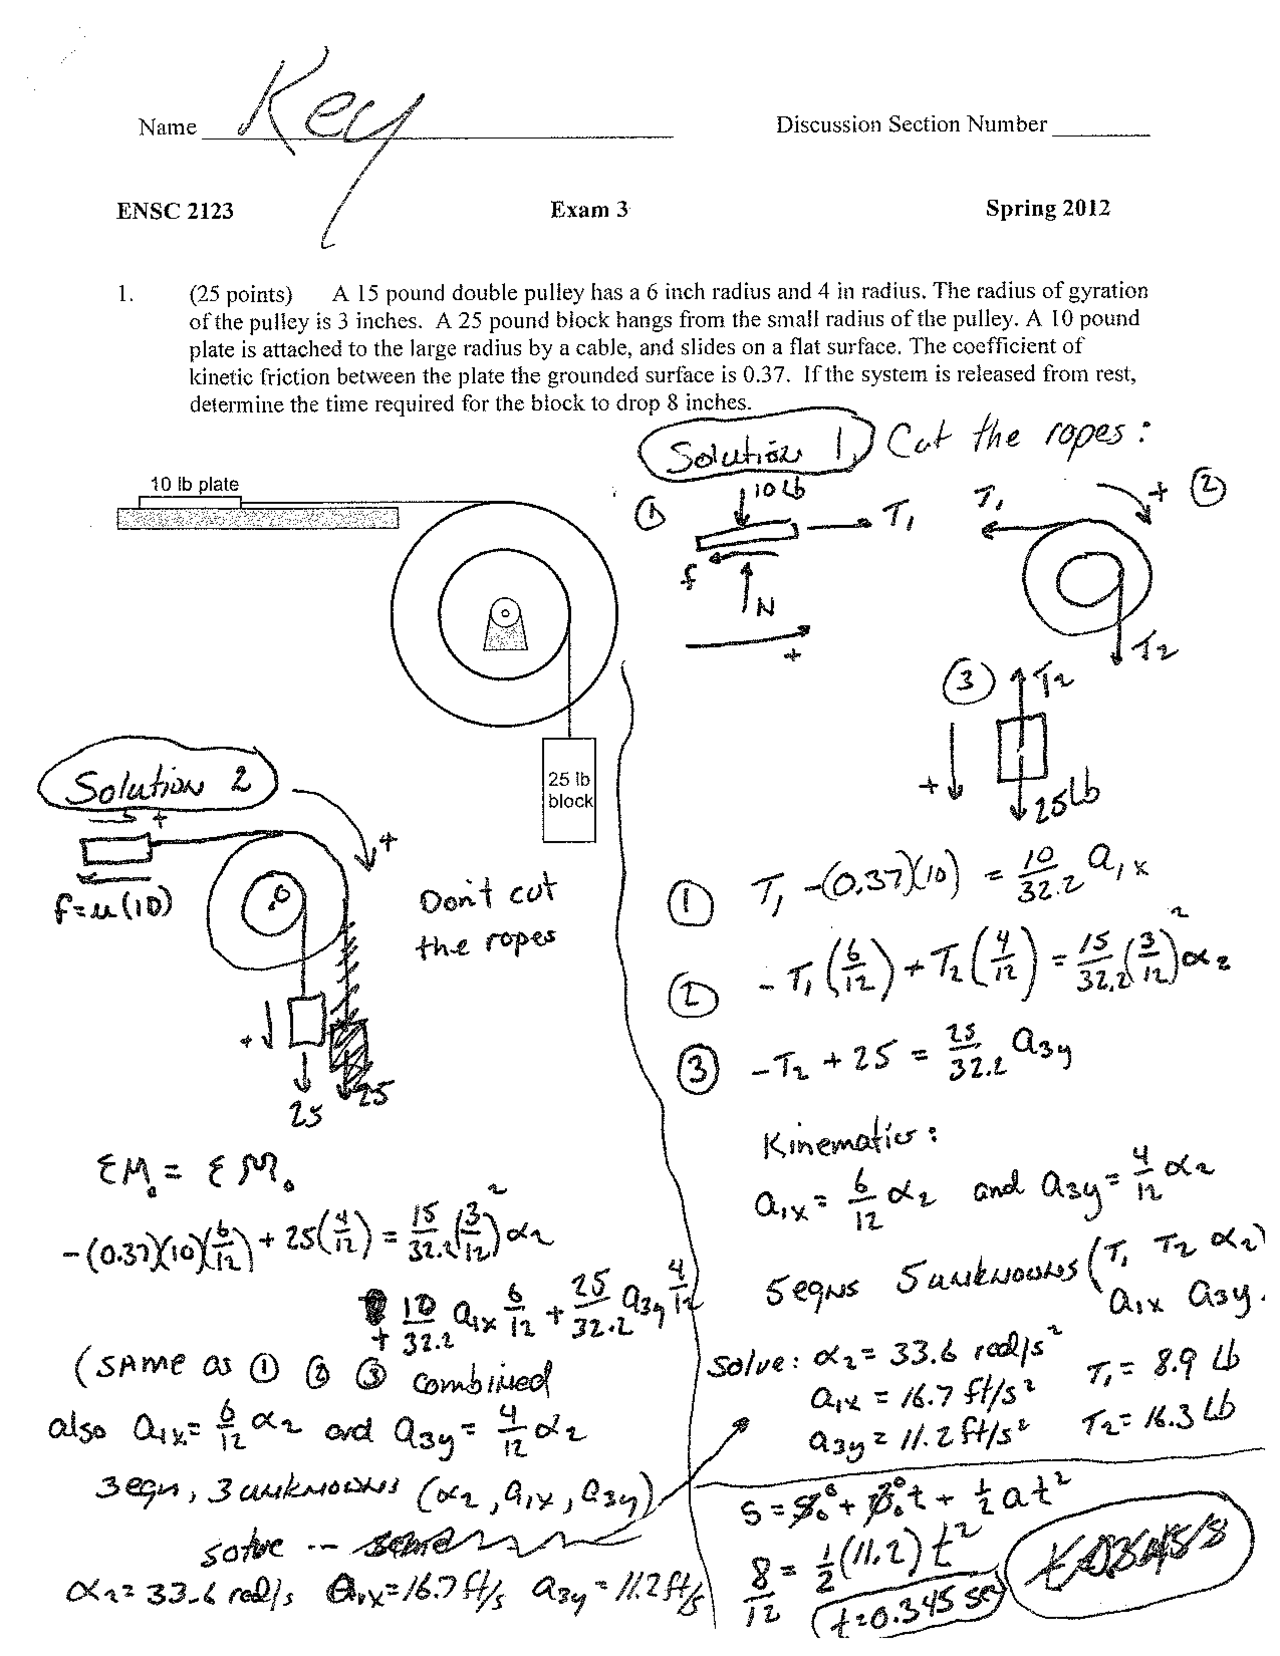 Name Key Discussion Section Number
ENSC 2123 Exam 3 Spring 2012
1. (25 points) A 15 pound double pulley has a 6 inch radius and 4 in radius. The radius of gyration
of the pulley is 3 inches. A 25 pound block hangs from the small radius of the pulley. A 10 pound
plate is attached to the large radius by a cable, and slides on a flat surface. The coefficient of
kinetic friction between the plate the grounded surface is 0.37. If the system is released from rest,
determine the time required for the block to drop 8 inches.
Solution 1, Cut the ropes:
10 lb plate
① 10 Lb T₁ f N +
T₁ + ② T₂
③ T₂ + 25 Lb
25 lb
block
① T₁ - (0.37)(10) = 10/32.2 a₁ₓ
② - T₁ (6/12) + T₂ (4/12) = 15/32.2 (3/12)² α₂
③ - T₂ + 25 = 25/32.2 a₃y
Kinematics:
a₁ₓ = 6/12 α₂ and a₃y = 4/12 α₂
5 eqns 5 unknowns (T₁ T₂ α₂)
a₁ₓ a₃y
Solve: α₂ = 33.6 rad/s² T₁ = 8.9 Lb
a₁ₓ = 16.7 ft/s² T₂ = 16.3 Lb
a₃y = 11.2 ft/s²
s = s₀⁰ + v₀⁰t + 1/2 at²
8/12 = 1/2 (11.2) t²
t=0.345 sec
Solution 2
+
+
f=u(10)
Don't cut
the ropes
+
25 25
ΣM₀ = ΣM₀
-(0.37)(10)(6/12) + 25(4/12) = 15/32.2 (3/12)² α₂
+ 10/32.2 a₁ₓ 6/12 + 25/32.2 a₃y 4/12
(SAME as ① ② ③ combined
also a₁ₓ = 6/12 α₂ and a₃y = 4/12 α₂
3 eqn, 3 unknowns (α₂, a₁ₓ, a₃y)
solve --
α₂ = 33.6 rad/s a₁ₓ = 16.7 ft/s a₃y = 11.2 ft/s